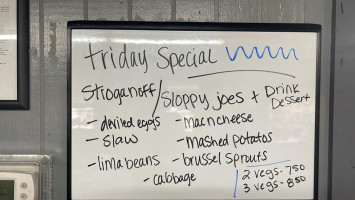 Friday Special
Stroganoff/Sloppy joes + Drink Dessert
- deviled eggs - mac n cheese
- slaw - mashed potatos
- lima beans - brussel sprouts
- cabbage
2 vegs - 750
3 vegs - 850